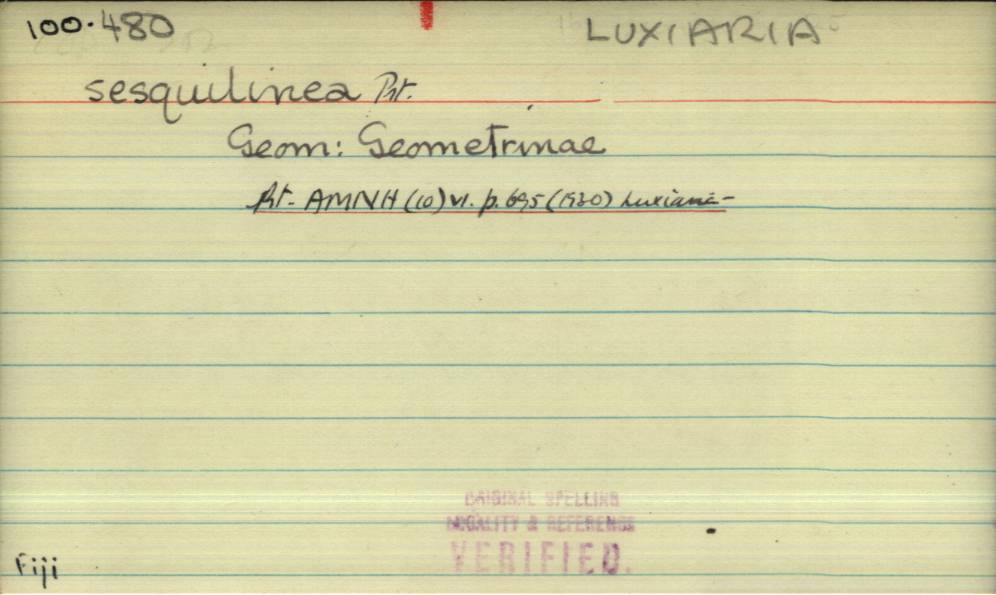 100.480 LUXIARIA
sesquilinea Prt.
Geom: Geometrinae
Prt. AMNH (10) VI. p. 695 (1930) Luxiaria -
ORIGINAL SPELLING
LOCALITY & REFERENCE
VERIFIED.
Fiji